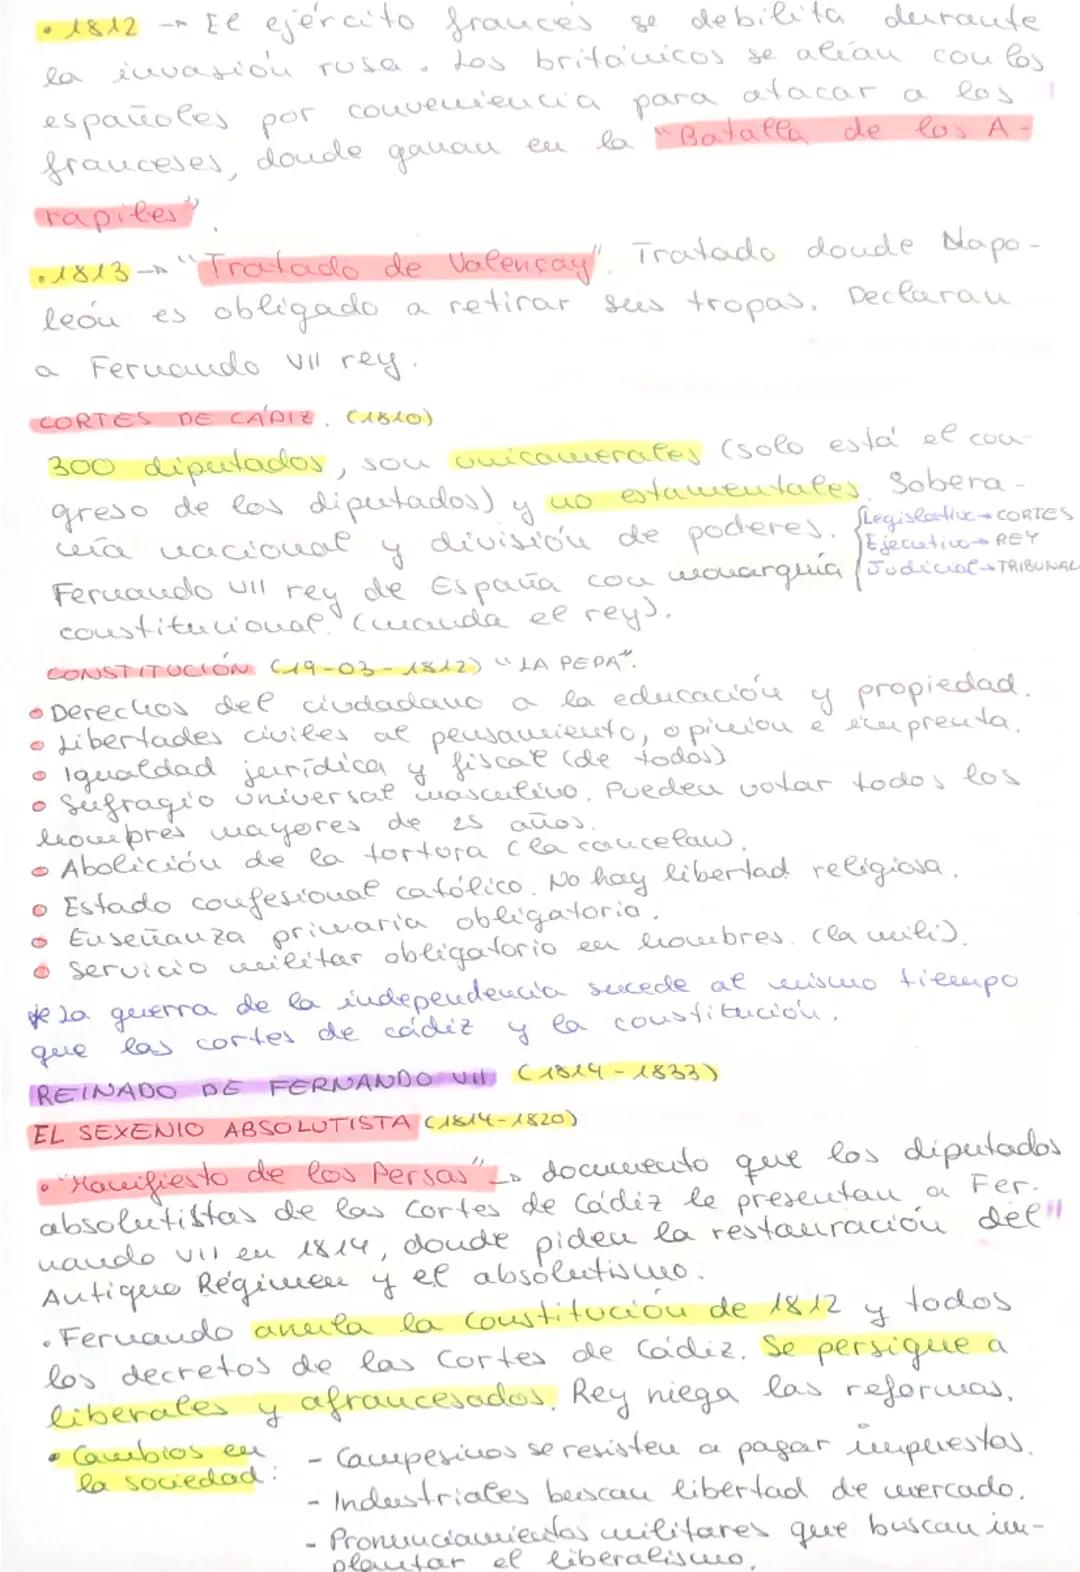 • 1812 → El ejército francés se debilita durante
la invasión rusa. Los británicos se alían con los
españoles por conveniencia para atacar a los
franceses, donde ganan en la "Batalla de los A-
rapiles".
• 1813 → "Tratado de Valençay". Tratado donde Napo-
león es obligado a retirar sus tropas. Declaran
a Fernando VII rey.
CORTES DE CÁDIZ. (1810)
300 diputados, son unicamerales (solo está el con-
greso de los diputados) y no estamentales. Sobera-
nía nacional y división de poderes. {Legislativo → CORTES
Ejecutivo → REY
Judicial → TRIBUNAL
Fernando VII rey de España con monarquía
constitucional. (manda el rey).
CONSTITUCIÓN (19-03-1812) "LA PEPA".
• Derechos del ciudadano a la educación y propiedad.
• Libertades civiles al pensamiento, opinion e imprenta.
• Igualdad jurídica y fiscal (de todos)
• Sufragio universal masculino. Pueden votar todos los
hombres mayores de 25 años.
• Abolición de la tortura (la cancelan).
• Estado confesional católico. No hay libertad religiosa.
• Enseñanza primaria obligatoria.
• Servicio militar obligatorio en hombres. (la mili).
* La guerra de la independencia sucede al mismo tiempo
que las cortes de cádiz y la constitución.
REINADO DE FERNANDO VII (1814-1833)
EL SEXENIO ABSOLUTISTA (1814-1820)
• "Manifiesto de los Persas" → documento que los diputados
absolutistas de las Cortes de Cádiz le presentan a Fer-
nando VII en 1814, donde piden la restauración del
Antiguo Régimen y el absolutismo.
• Fernando anula la Constitución de 1812 y todos
los decretos de las Cortes de Cádiz. Se persigue a
liberales y afrancesados. Rey niega las reformas.
• Cambios en la sociedad:
- Campesinos se resisten a pagar impuestos.
- Industriales buscan libertad de mercado.
- Pronunciamientos militares que buscan im-
plantar el liberalismo.